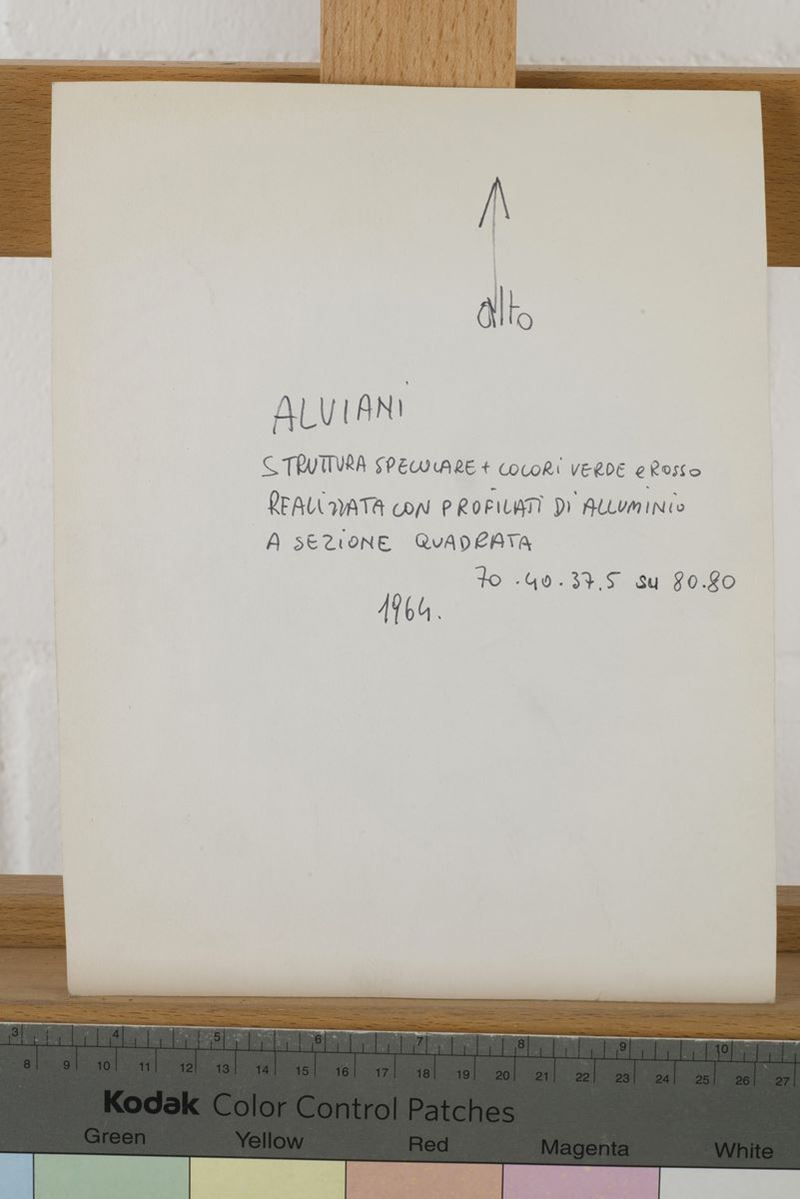 alto
ALVIANI
STRUTTURA SPECULARE + COLORI VERDE e ROSSO
REALIZZATA CON PROFILATI DI ALLUMINIO
A SEZIONE QUADRATA
70.40.37.5 su 80.80
1964.
3 4 5 6 7 8 9 10
8 9 10 11 12 13 14 15 16 17 18 19 20 21 22 23 24 25 26 27
Kodak Color Control Patches
Green Yellow Red Magenta White